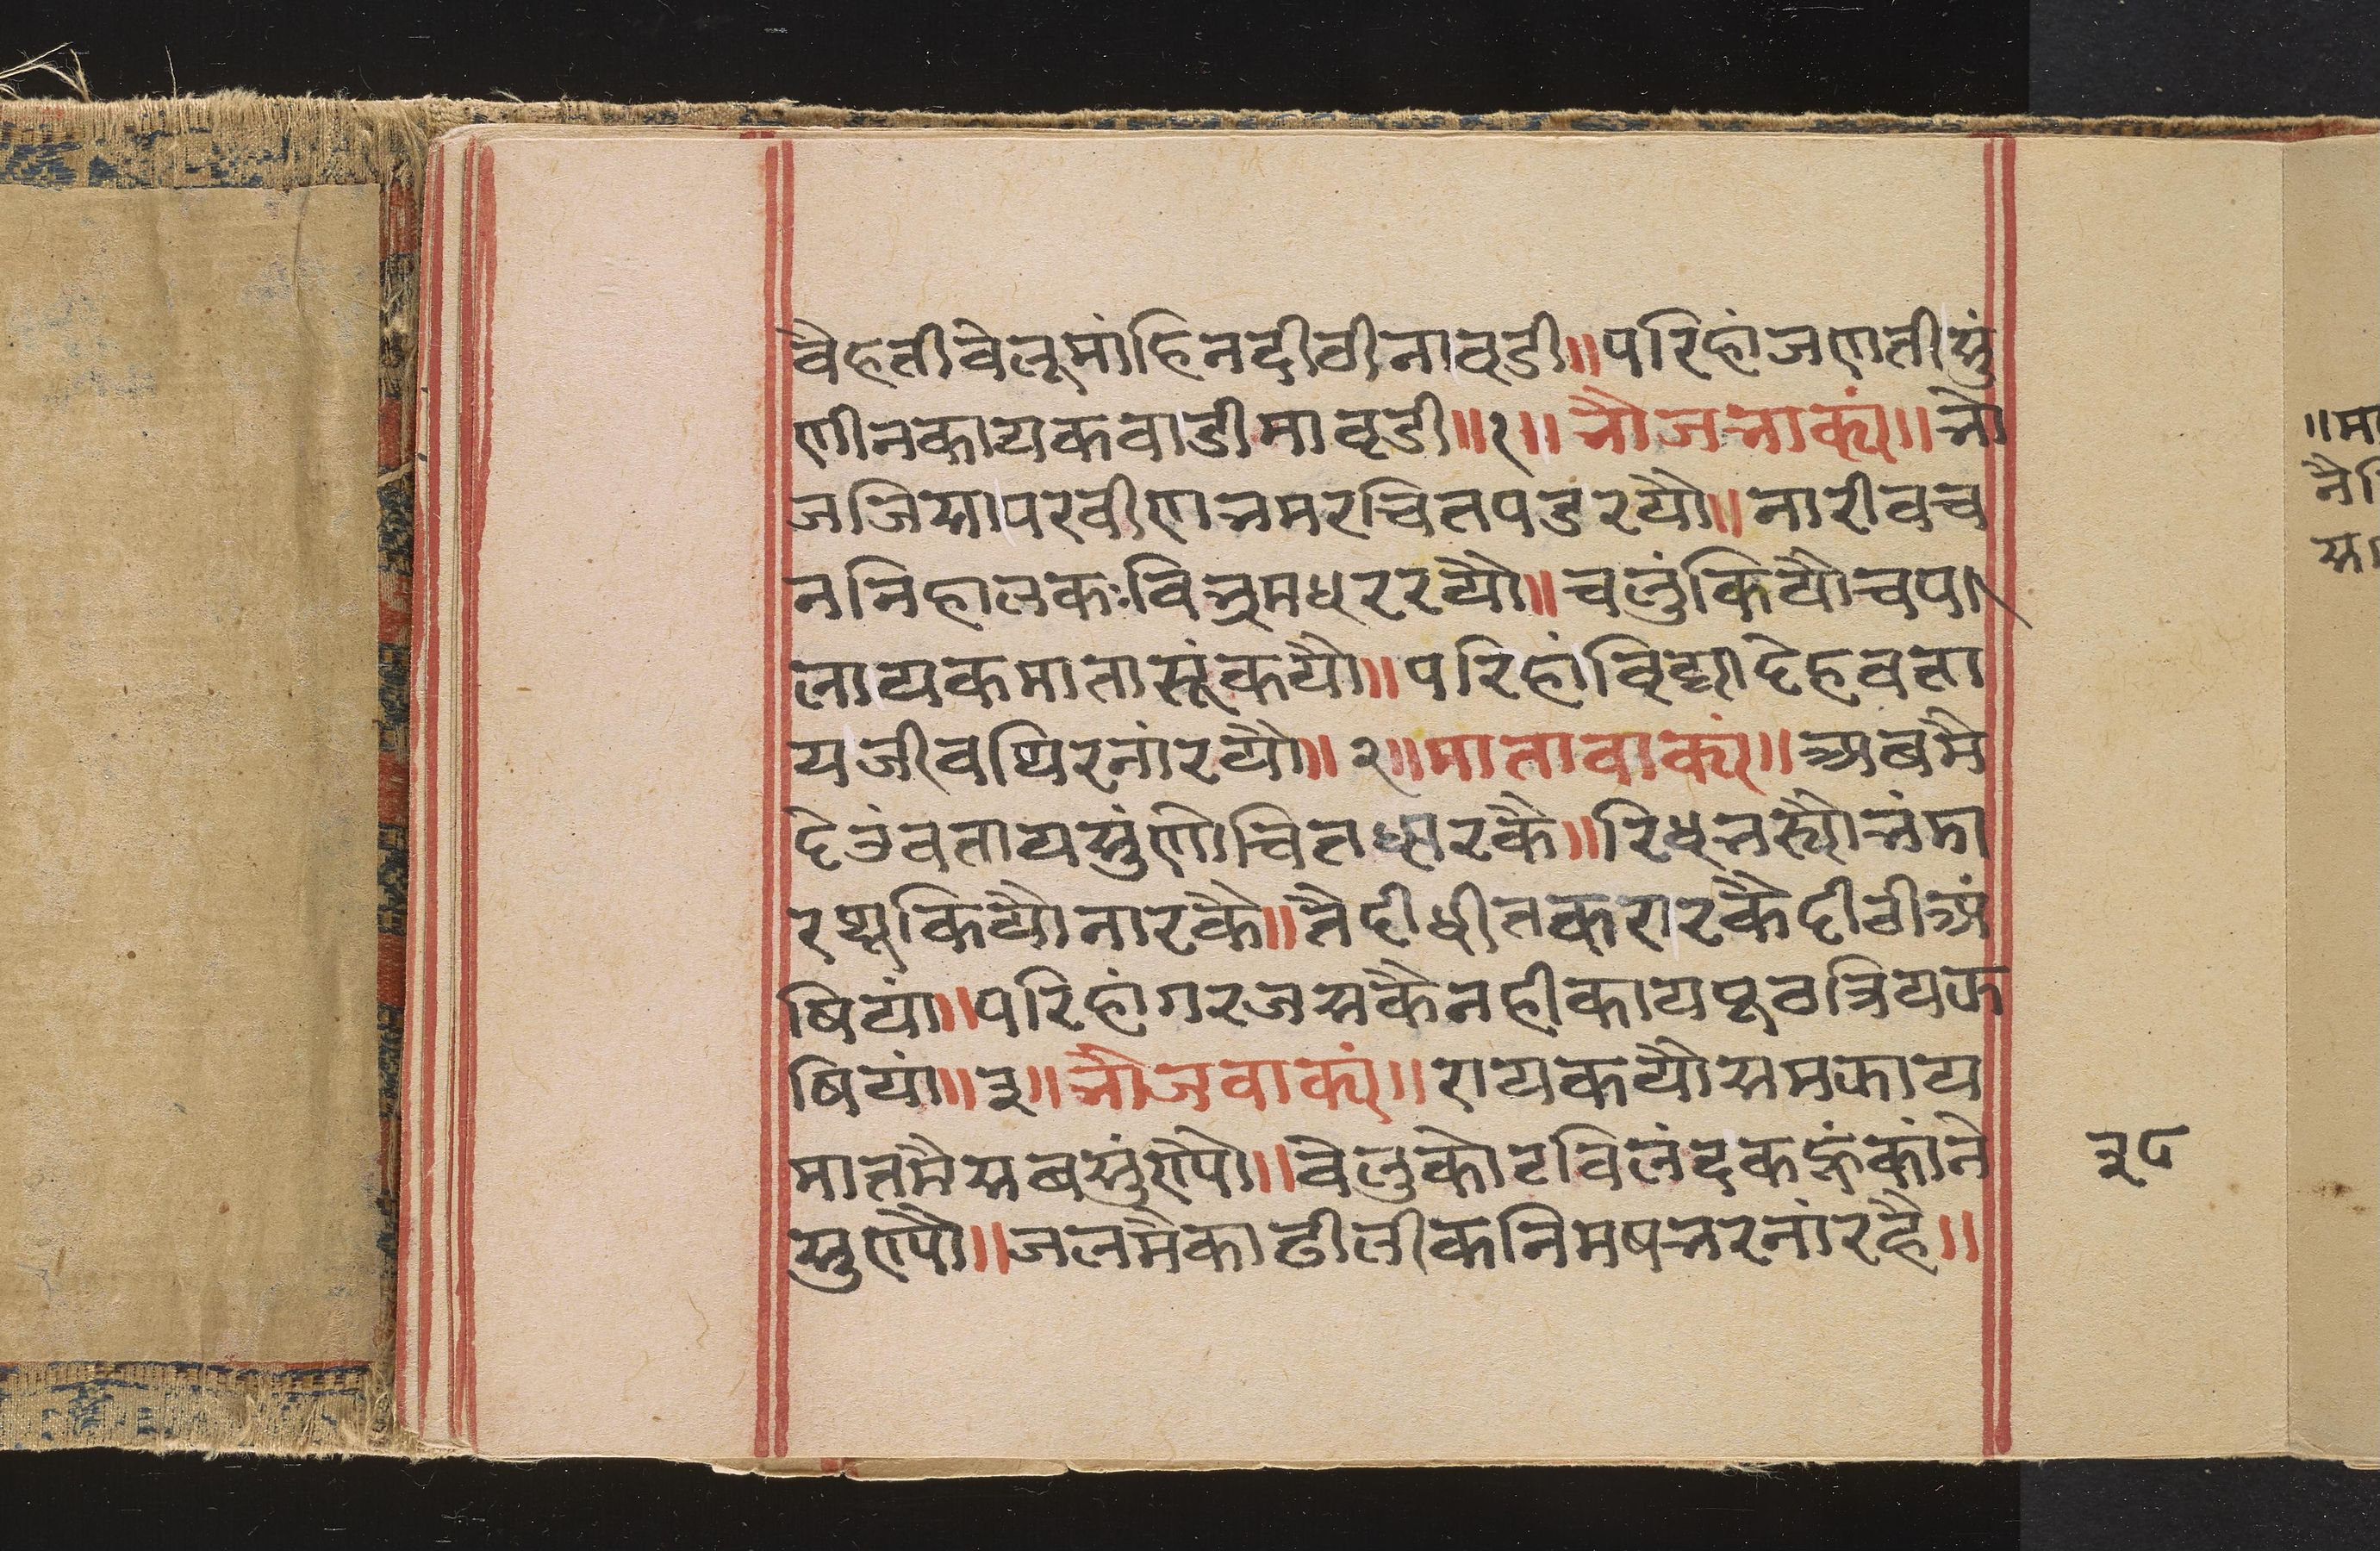 वैहतीवेलूमांहिनदीठीनावडी॥परिहांजणतीसुं
णीनकायकवाडीमावडी॥१॥भोजभाक्यं॥भो
जजिसापरवीणभमरचितपडरयौ॥नारीवच
ननिहालकःविभ्रमधररयौ॥चलुंकियौचपा
लायकमातासूंकयौ॥परिहांविद्यादेहवता
यजीवथिरनांरयौ॥२॥मातावाक्यं॥अबमै
देउंवतायसुंणोचितधारकै॥रिधभस्योभंमा
रशूकियौनारकै॥तैदीधीतकरारकैदीठीअं
षियां॥परिहांगरजसकैनहीकायपूठत्रियफ
षियां॥३॥भोजवाक्यं॥रायकयौसमकाय
मातमैसबसुंण्यो॥वेलुकोटविलंदकहुंकांने
सुण्यौ॥जलमैकाढीलीकनिमषभरनांरहै॥
३८
॥मा